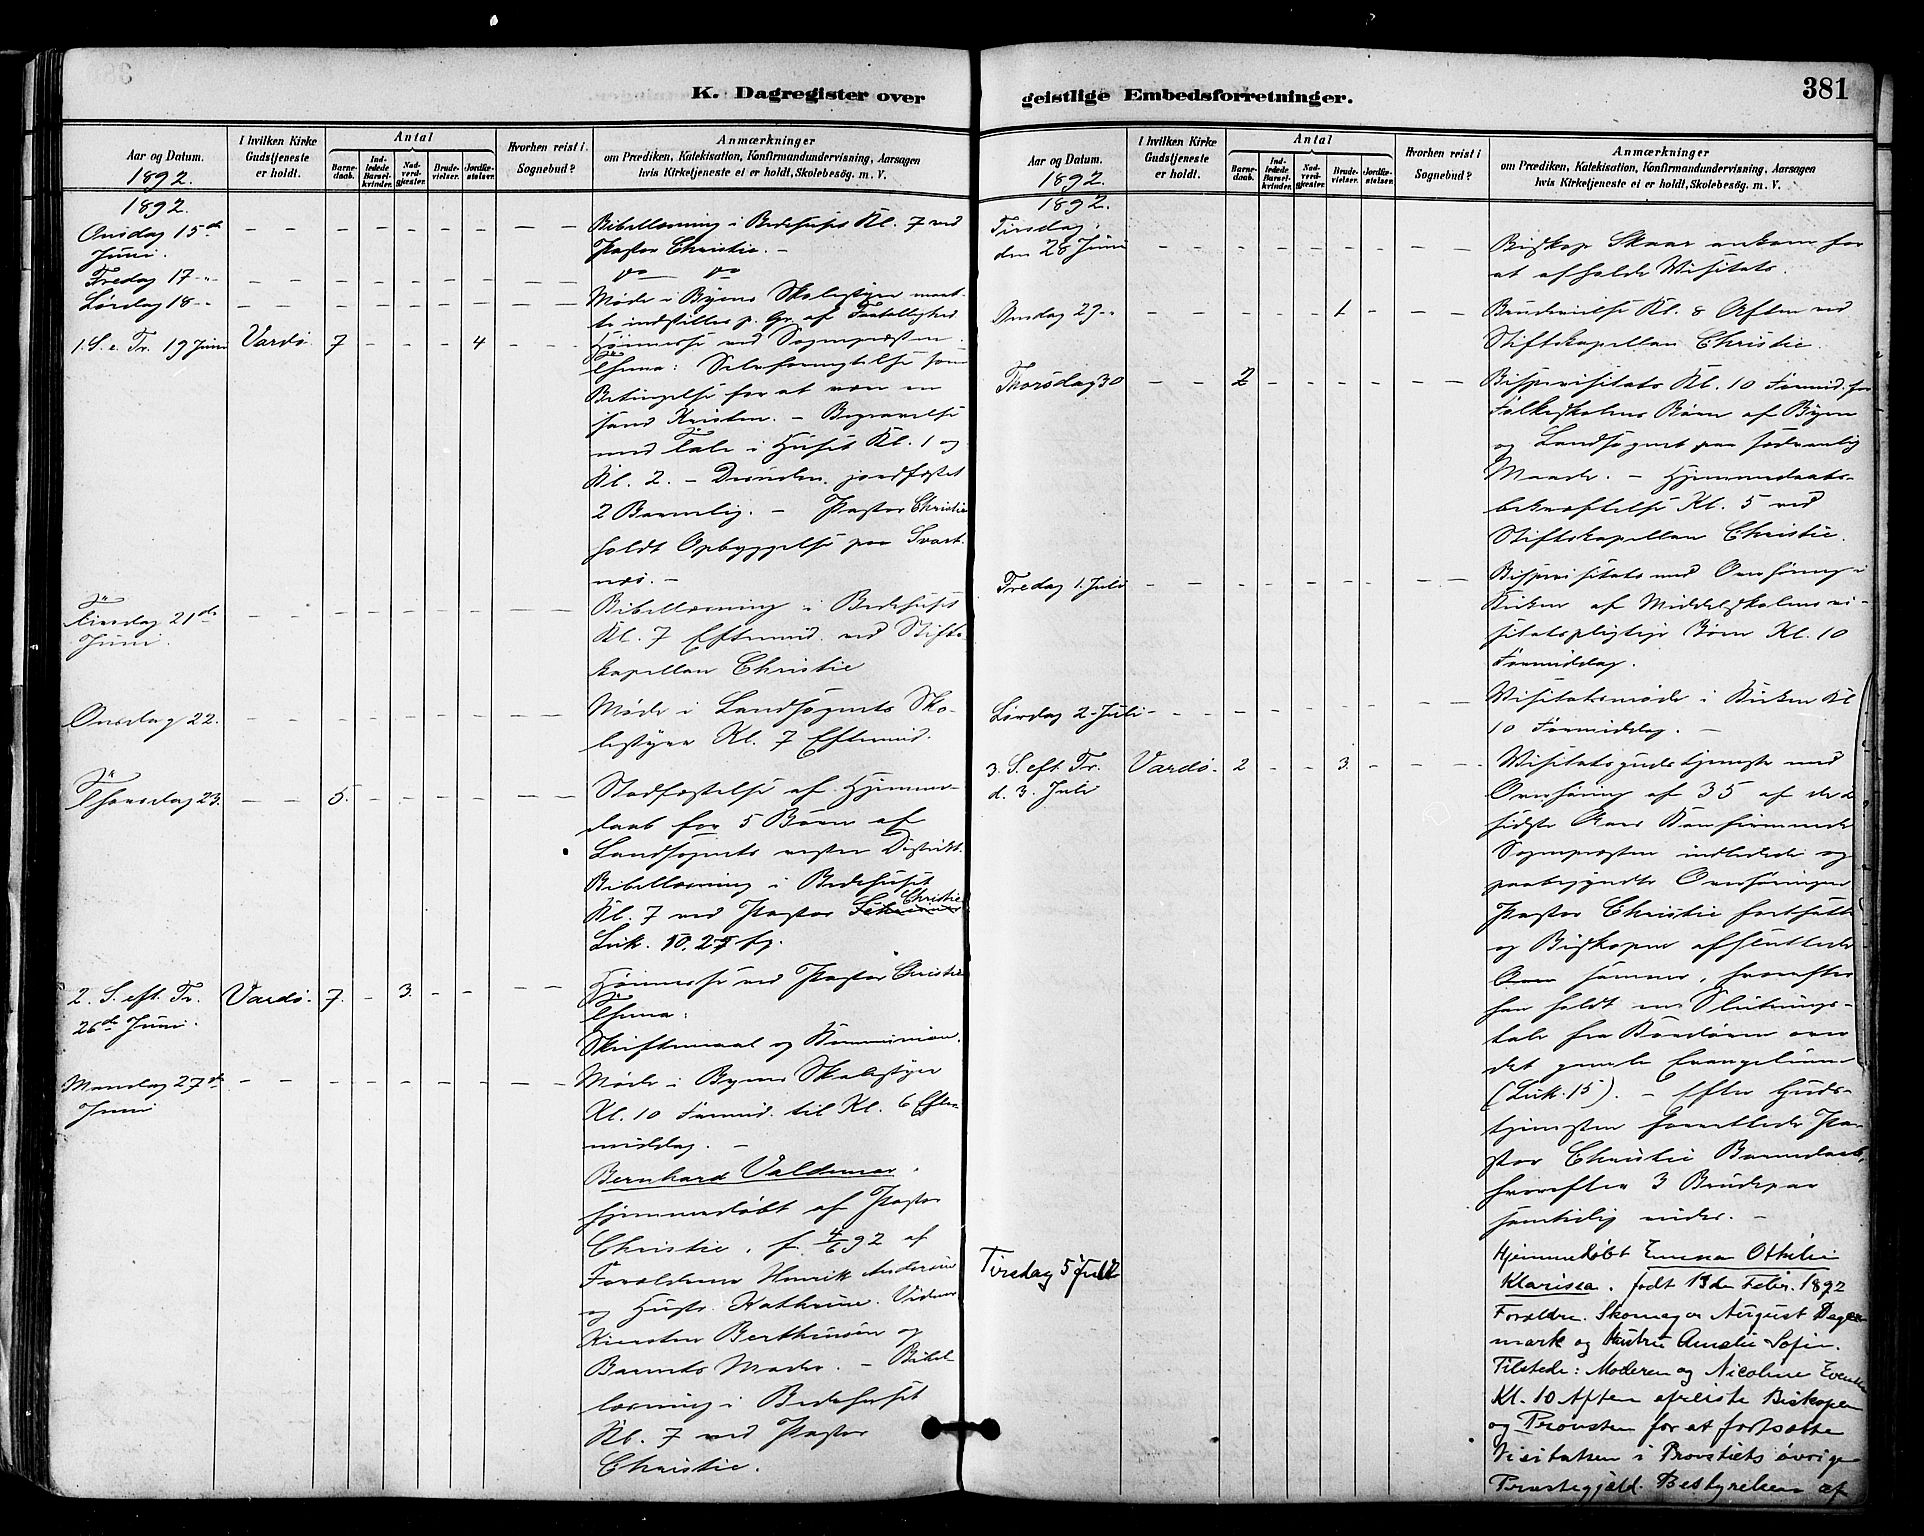 K. Dagregister over
Aar og Datum.
1892.
I hvilken Kirke
Gudstjeneste
er holdt.
Antal
Barne-
daab.
Ind-
ledede
Barsel-
kvinder.
Nad-
verd-
gjæster.
Brude-
vielser.
Jordfæ-
stelser.
Hvorhen reist i
Sognebud?
Anmærkninger
om Prædiken, Katekisation, Konfirmandundervisning, Aarsagen
hvis Kirketjeneste ei er holdt, Skolebesøg. m. V.
1892.
Onsdag 15de
Juni.
Bibellæsning i Bedehuset Kl. 7 ved
Pastor Christie. –
Fredag 17 -"-
do do
Lørdag 18 -"
Møde i Byens Skolestyre maat-
te indstilles p. Gr. af Forfaldighed.
1. S. e. Tr. 19 Juni Vardø 7 – – – 4
Høimesse ved Sognepræsten.
Thema: Selvfornegtelse som
Betingelse for at være en
sand Kristen. – Begravelse
med Tale i Huset Kl. 1 og
Kl. 2. – Desuden jordfæstet
2 Barnelig. – Pastor Christie
holdt Opbyggelse paa Svart-
næs. –
Tirsdag 21de
Juni.
Bibellæsning i Bedehuset
Kl. 7 Eftermid. ved Stifts-
kapellan Christie
Onsdag 22.
Møde i Landsognets Sko-
lestyre Kl. 7 Eftermid.
Thorsdag 23. 5.
Stadfæstelse af Hjemme-
daab for 5 Børn af
Landsognets vestre Distrikt.
Bibellæsning i Bedehuset
Kl. 7 ved Pastor Christie
Luk. 10. 25 fg.
2. S. eft. Tr.
26de Juni. Vardø. 7. – 3.
Høimesse ved Pastor Christie
Thema:
Skriftemaal og Kommunion.
Mandag 27de
Juni
Møde i Byens Skolestyre
Kl. 10 Formid. til Kl. 6 Efter-
middag. –
Bernhard Valdemar.
hjemmedøbt af Pastor
Christie. f. 4/6 92 af
Forældrene Henrik Andersen
og Hustr. Kathrine. Vidner
Kirsten Berthinsen og
Barnets Moder. – Bibel-
læsning i Bedehuset
Kl. 7 ved Pastor
Christie.
geistlige Embedsforretninger.
381
Aar og Datum.
1892.
I hvilken Kirke
Gudstjeneste
er holdt.
Antal
Barne-
daab.
Ind-
ledede
Barsel-
kvinder.
Nad-
verd-
gjæster.
Brude-
vielser.
Jordfæ-
stelser.
Hvorhen reist i
Sognebud?
Anmærkninger
om Prædiken, Katekisation, Konfirmandundervisning, Aarsagen
hvis Kirketjeneste ei er holdt, Skolebesøg. m. V.
1892.
Tirsdag
den 28 Juni
Biskop Skaar ankom for
at afholde Visitats.
Onsdag 29 -"- 1.
Brudevielse Kl. 8 Aften ved
Stiftskapellan Christie.
Thorsdag 30 2
Bispevisitats Kl. 10 Formid. for
Folkeskolens Børn af Byen
og Landsognet paa sædvanlig
Maade. – Hjemmedaabs-
bekræftelse Kl. 5 ved
Stiftskapellan Christie.
Fredag 1. Juli
Bispevisitats med Overhøring i
Kirken af Middelskolens vi-
sitatspligtige Børn Kl. 10
Formiddag.
Lørdag 2. Juli
Visitatsmøde i Kirken Kl
10 Formiddag. –
3. S. eft Tr.
d. 3. Juli Vardø. 2 – – 3.
Visitatsgudstjeneste med
Overhøring af 35 af de 2
sidste Aars Konfirmerede
Sognepræsten indledede og
paabegyndte Overhøringen
Pastor Christie fortsatte
og Biskopen afsluttede
samme, hvorefter
han holdt en Slutnings-
tale fra Kordøren over
det gamle Evangelium
(Luk. 15). – Efter Guds-
tjenesten forrettede Pa-
stor Christie Barnedaab,
hvorefter 3 Brudepar
samtidig viedes. –
Tirsdag 5 Juli
Hjemmedøbt Emma Othilie
Klarissa. født 13de Febr. 1892
Forældre. Skomager August Dager-
mark og Hustru Amalie Sofie.
Tilstede: Moderen og Nicoline
Kl. 10 Aften afreiste Biskopen
og Provsten for at fortsætte
Visitatsen i Provstiets øvrige
Præstegjæld. Bestyrelsen af